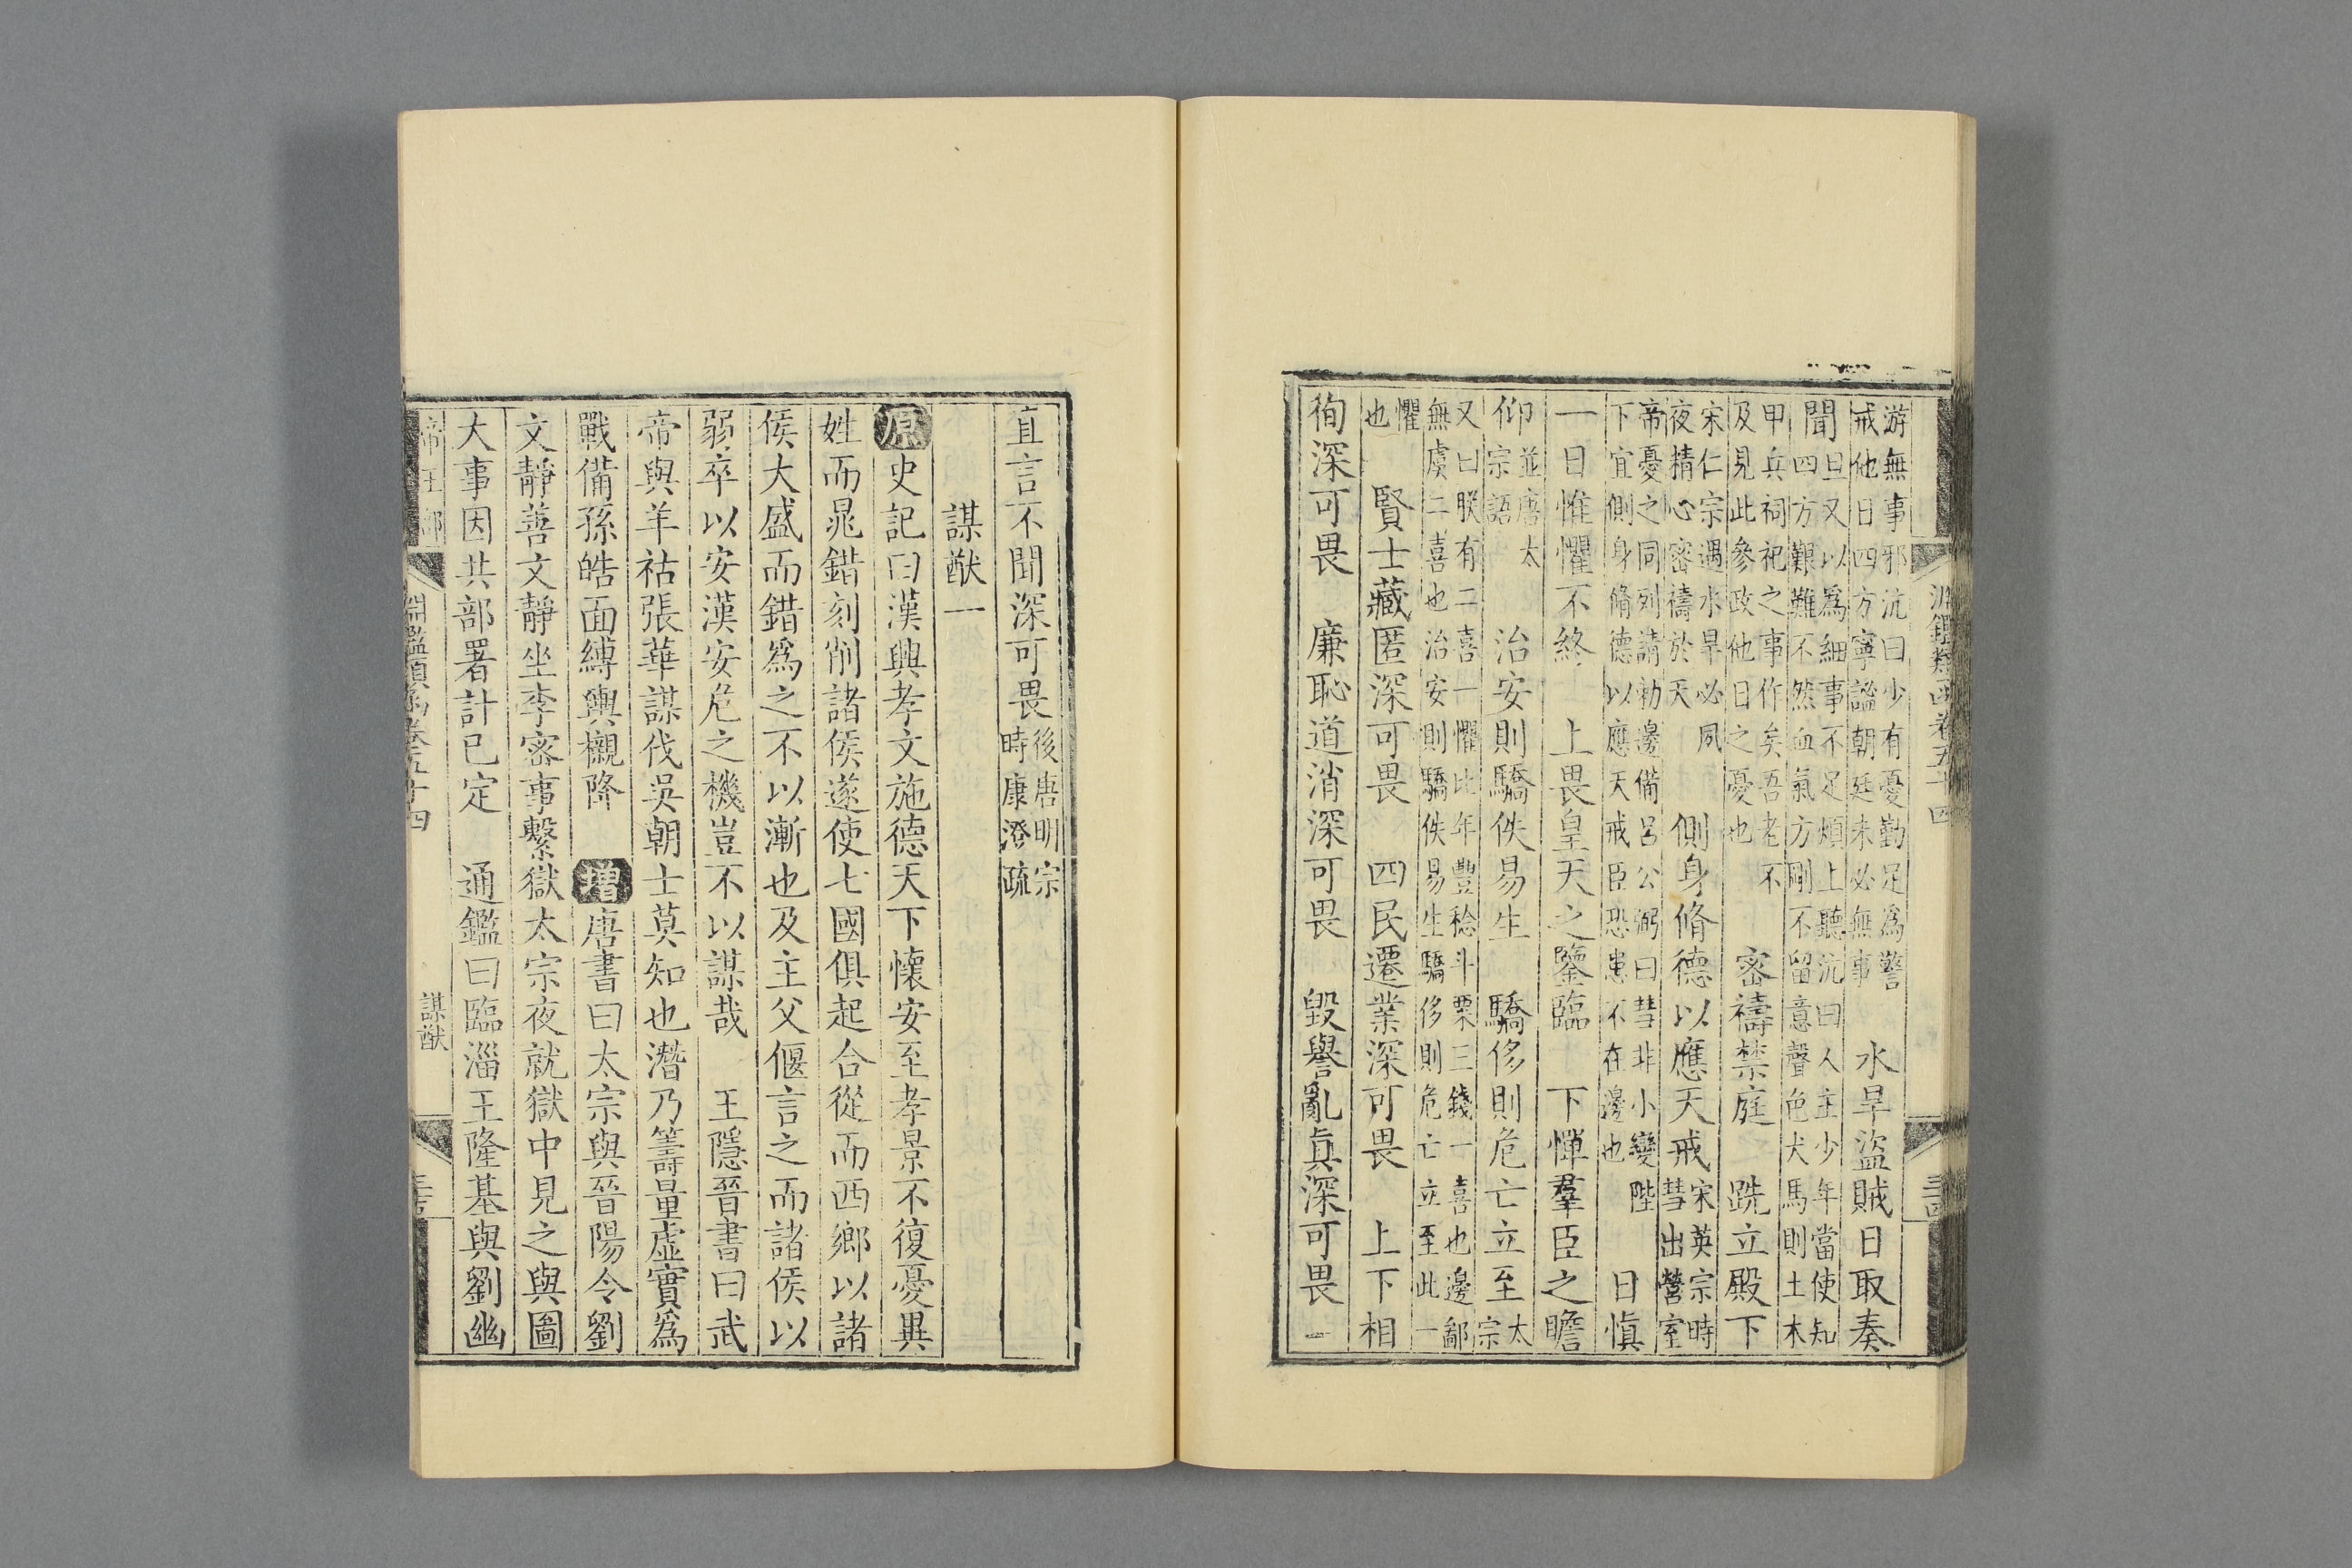 游無事邪沆曰少有憂勤足為警
戒他日四方寧謐朝廷未必無事
水旱盜賊日取奏
聞
旦又以為細事不足煩上聽沆曰人主少年當使知
四方艱難不然血氣方剛不留意聲色犬馬則土木
甲兵祠祀之事作矣吾老不
及見此參政他日之憂也
密禱禁庭　跣立殿下
宋仁宗遇水旱必夙
夜精心密禱於天
側身脩德以應天戒
宋英宗時
彗出營室
帝憂之同列請勑邊備呂公弼曰彗非小變陛
下宜側身脩德以應天戒臣恐患不在邊也
日慎
一日惟懼不終　上畏皇天之鑒臨　下憚羣臣之瞻
仰
並唐太
宗語
治安則驕佚易生　驕侈則危亡立至
太
宗
又曰朕有二喜一懼比年豐稔斗粟三錢一喜也邊鄙
無虞二喜也治安則驕佚易生驕侈則危亡立至此一
懼
也
賢士藏匿深可畏　四民遷業深可畏　上下相
徇深可畏　廉恥道消深可畏　毀譽亂真深可畏
直言不聞深可畏
後唐明宗
時康澄疏
謀猷一
原史記曰漢興孝文施德天下懷安至孝景不復憂異
姓而晁錯刻削諸侯遂使七國俱起合從而西鄉以諸
侯大盛而錯為之不以漸也及主父偃言之而諸侯以
弱卒以安漢安危之機豈不以謀哉　王隱晉書曰武
帝與羊祜張華謀伐吳朝士莫知也潛乃籌量虛實為
戰備孫皓面縛輿櫬降　增唐書曰太宗與晉陽令劉
文靜善文靜坐李密事繫獄太宗夜就獄中見之與圖
大事因共部署計已定　通鑑曰臨淄王隆基與劉幽
帝王部
淵鑑類函卷五十四
謀猷